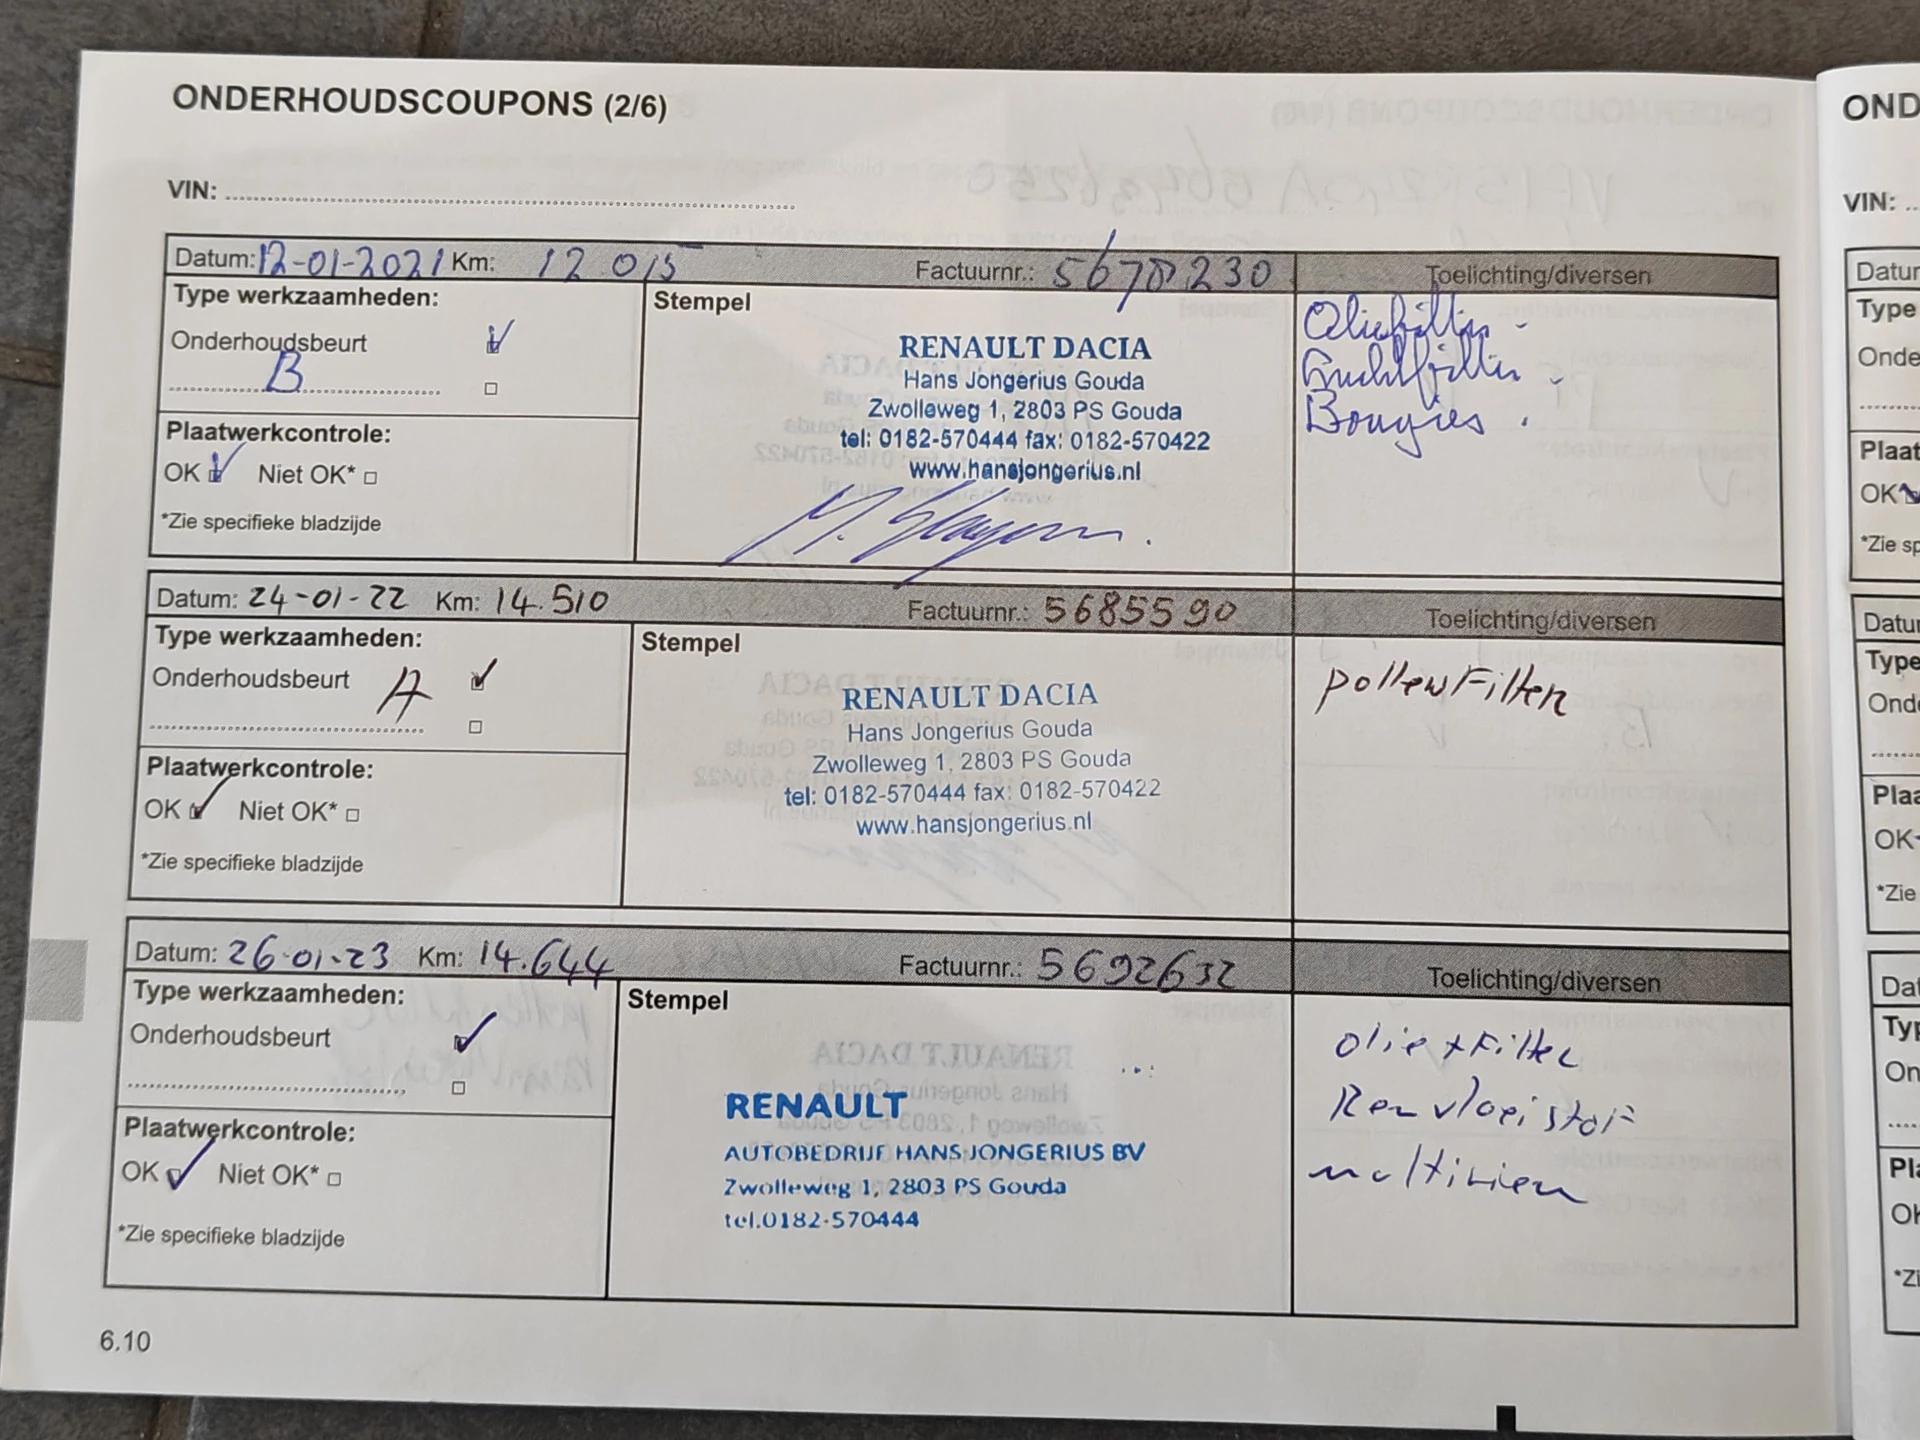 ONDERHOUDSCOUPONS (2/6)
VIN:
Datum: 12-01-2021 Km: 12 015 Factuurnr.: 5678230 Toelichting/diversen
Type werkzaamheden:
Onderhoudsbeurt
B
Plaatwerkcontrole:
OK Niet OK*
*Zie specifieke bladzijde
Stempel
RENAULT DACIA
Hans Jongerius Gouda
Zwolleweg 1, 2803 PS Gouda
tel: 0182-570444 fax: 0182-570422
www.hansjongerius.nl
Oliefilter -
Luchtfilter -
Bougies .
Datum: 24-01-22 Km: 14.510 Factuurnr.: 5685590 Toelichting/diversen
Type werkzaamheden:
Onderhoudsbeurt A
Plaatwerkcontrole:
OK Niet OK*
*Zie specifieke bladzijde
Stempel
RENAULT DACIA
Hans Jongerius Gouda
Zwolleweg 1, 2803 PS Gouda
tel: 0182-570444 fax: 0182-570422
www.hansjongerius.nl
pollenFilter
Datum: 26-01-23 Km: 14.644 Factuurnr.: 5692632 Toelichting/diversen
Type werkzaamheden:
Onderhoudsbeurt
Plaatwerkcontrole:
OK Niet OK*
*Zie specifieke bladzijde
Stempel
RENAULT
AUTOBEDRIJF HANS JONGERIUS BV
Zwolleweg 1, 2803 PS Gouda
tel.0182-570444
olie + Filter
Remvloeistof
multiriem
6.10
OND
VIN: ..
Datur
Type
Onde
Plaat
OK
*Zie sp
Datu
Type
Onde
Plaa
OK
*Zie
Dat
Typ
On
Pla
OK
*Zi